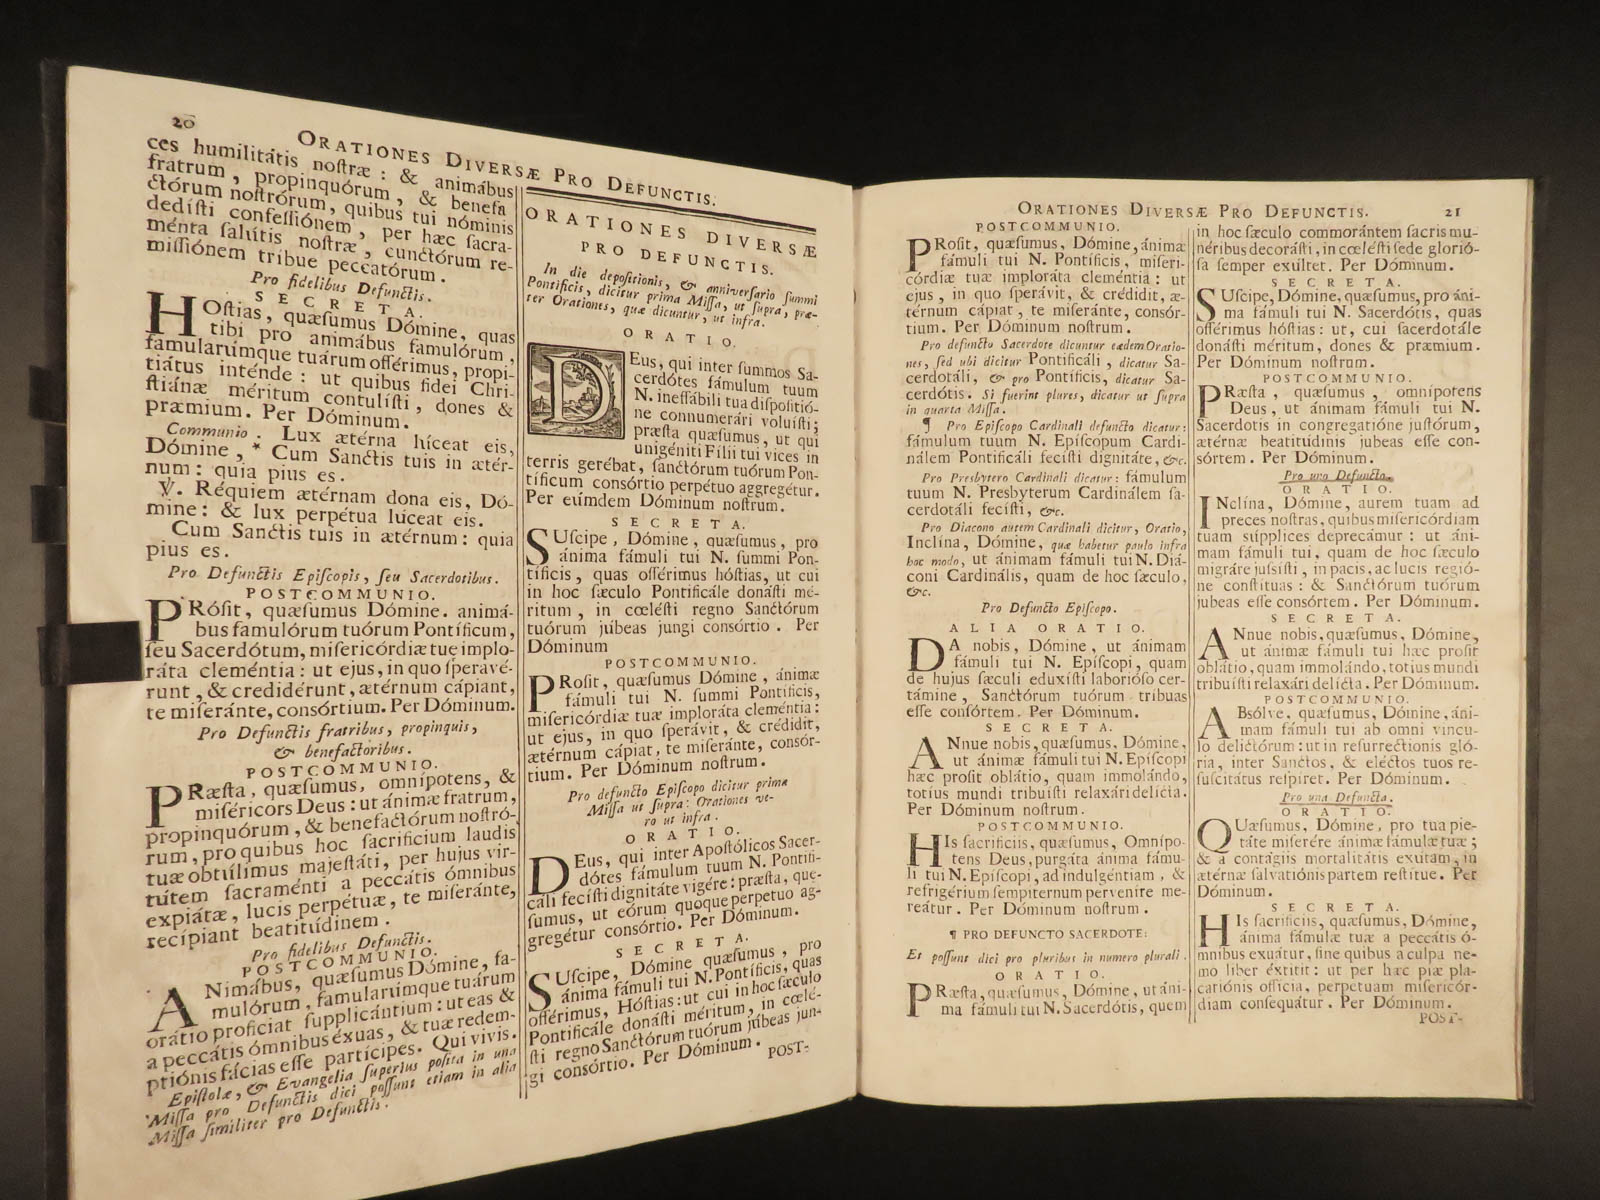 20
ORATIONES DIVERSÆ PRO DEFUNCTIS.
ces humilitátis noſtræ : & animábus
fratrum, propinquórum, & benefa
ctórum noſtrórum, quibus tui nóminis
dedíſti confeſſiónem, per hæc ſacra-
ménta ſalútis noſtræ, cunctórum re-
miſſiónem tribue peccatórum.
Pro fidelibus Defunctis.
SECRETA.
HOſtias, quæſumus Dómine, quas
tibi pro animábus famulórum,
famularúmque tuárum offérimus, propi-
tiátus inténde : ut quibus fídei Chri-
ſtiánæ méritum contulíſti, dones &
præmium. Per Dóminum.
Communio. Lux ætérna lúceat eis,
Dómine, * Cum Sanctis tuis in ætér-
num : quia pius es.
℣. Réquiem ætérnam dona eis, Dó-
mine : & lux perpétua lúceat eis.
Cum Sanctis tuis in ætérnum : quia
pius es.
Pro Defunctis Epiſcopis, ſeu Sacerdotibus.
POSTCOMMUNIO.
PRóſit, quæſumus Dómine. animá-
bus famulórum tuórum Pontíficum,
ſeu Sacerdótum, miſericórdiæ tuę implo-
ráta cleméntia : ut ejus, in quo ſperavé-
runt, & credidérunt, ætérnum cápiant,
te miſeránte, consórtium. Per Dóminum.
Pro Defunctis fratribus, propinquis,
& benefactoribus.
POSTCOMMUNIO.
PRæſta, quæſumus, omnípotens, &
miſéricors Deus : ut ánimæ fratrum,
propinquórum, & benefactórum noſtró-
rum, pro quibus hoc ſacrificium laudis
tuæ obtúlimus majeſtáti, per hujus vir-
tútem ſacraménti a peccátis ómnibus
expiátæ, lucis perpétuæ, te miſeránte,
recípiant beatitúdinem.
Pro fidelibus Defunctis.
POSTCOMMUNIO.
ANimábus, quæſumus Dómine, fa-
mulórum, famularúmque tuárum
orátio profíciat ſupplicántium : ut eas &
a peccátis ómnibus éxuas, & tuæ redem-
ptiónis fácias eſſe partícipes. Qui vivis.
Epiſtolæ, & Evangelia ſuperius poſita in una
Miſſa pro Defunctis dici poſſunt etiam in alia
Miſſa ſimiliter pro Defunctis.
ORATIONES DIVERSÆ
PRO DEFUNCTIS.
In die depoſitionis, & anniverſario ſummi
Pontificis, dicitur prima Miſſa, ut ſupra, præ-
ter Orationes, quæ dicuntur, ut infra.
ORATIO.
DEus, qui inter ſummos Sa-
cerdótes fámulum tuum
N. ineffábili tua diſpoſitió-
ne connumerári voluíſti ;
præſta quæſumus, ut qui
unigéniti Fílii tui vices in
terris gerébat, ſanctórum tuórum Pon-
tíficum consórtio perpétuo aggregétur.
Per eúmdem Dóminum noſtrum.
SECRETA.
SUſcipe, Dómine, quæſumus, pro
ánima fámuli tui N. ſummi Pon-
tíficis, quas offérimus hóſtias, ut cui
in hoc ſæculo Pontificále donáſti mé-
ritum, in cœléſti regno Sanctórum
tuórum júbeas jungi consórtio. Per
Dóminum
POSTCOMMUNIO.
PRoſit, quæſumus Dómine, ánimæ
fámuli tui N. ſummi Pontíficis,
miſericórdiæ tuæ imploráta cleméntia :
ut ejus, in quo ſperávit, & crédidit,
ætérnum cápiat, te miſeránte, consór-
tium. Per Dóminum noſtrum.
Pro defuncto Epiſcopo dicitur prima
Miſſa ut ſupra : Orationes ve-
ro ut infra.
ORATIO.
DEus, qui inter Apoſtólicos Sacer-
dótes fámulum tuum N. Pontifi-
cáli fecíſti dignitáte vigére : præſta, quę-
ſumus, ut eórum quoque perpétuo ag-
gregétur consórtio. Per Dóminum.
SECRETA.
SUſcipe, Dómine quæſumus, pro
ánima fámuli tui N. Pontíficis, quas
offérimus, Hóſtias : ut cui in hoc ſæculo
Pontificále donáſti méritum, in cœlé-
ſti regno Sanctórum tuórum júbeas jun-
gi consórtio. Per Dóminum.
POST-
ORATIONES DIVERSÆ PRO DEFUNCTIS.
21
POSTCOMMUNIO.
PRoſit, quæſumus, Dómine, ánimæ
fámuli tui N. Pontíficis, miſeri-
córdiæ tuæ imploráta cleméntia : ut
ejus, in quo ſperávit, & crédidit, æ-
térnum cápiat, te miſeránte, consór-
tium. Per Dóminum noſtrum.
Pro defuncto Sacerdote dicuntur eædem Oratio-
nes, ſed ubi dicitur Pontificáli, dicatur Sa-
cerdotáli, & pro Pontíficis, dicatur Sa-
cerdótis. Si fuerint plures, dicatur ut ſupra
in quarta Miſſa.
¶ Pro Epiſcopo Cardinali defuncto dicatur :
fámulum tuum N. Epíſcopum Cardi-
nálem Pontificáli fecíſti dignitáte, &c.
Pro Presbytero Cardinali dicatur : fámulum
tuum N. Presbyterum Cardinálem ſa-
cerdotáli fecíſti, &c.
Pro Diacono autem Cardinali dicitur, Oratio,
Inclína, Dómine, quæ habetur paulo infra
hoc modo, ut ánimam fámuli tui N. Diá-
coni Cardinális, quam de hoc ſæculo,
&c.
Pro Defuncto Epiſcopo.
ALIA ORATIO.
DA nobis, Dómine, ut ánimam
fámuli tui N. Epíſcopi, quam
de hujus ſæculi eduxíſti laborióſo cer-
támine, Sanctórum tuórum tríbuas
eſſe conſórtem. Per Dóminum.
SECRETA.
ANnue nobis, quæſumus, Dómine,
ut ánimæ fámuli tui N. Epíſcopi
hæc proſit oblátio, quam immolándo,
totíus mundi tribuíſti relaxári delícta.
Per Dóminum noſtrum.
POSTCOMMUNIO.
HIs ſacrifíciis, quæſumus, Omnípo-
tens Deus, purgáta ánima fámu-
li tui N. Epíſcopi, ad indulgéntiam, &
refrigérium ſempitérnum perveníre me-
reátur. Per Dóminum noſtrum.
¶ PRO DEFUNCTO SACERDOTE :
Et poſſunt dici pro pluribus in numero plurali.
ORATIO.
PRæſta, quæſumus, Dómine, ut áni-
ma fámuli tui N. Sacerdótis, quem
in hoc ſæculo commorántem ſacris mu-
néribus decoráſti, in cœléſti ſede glorió-
ſa ſemper exúltet. Per Dóminum.
SECRETA.
SUſcipe, Dómine, quæſumus, pro áni-
ma fámuli tui N. Sacerdótis, quas
offérimus hóſtias : ut, cui ſacerdotále
donáſti méritum, dones & præmium.
Per Dóminum noſtrum.
POSTCOMMUNIO.
PRæſta, quæſumus, omnípotens
Deus, ut ánimam fámuli tui N.
Sacerdotis in congregatióne juſtórum,
ætérnæ beatitúdinis júbeas eſſe con-
ſórtem. Per Dóminum.
Pro uno Defuncto.
ORATIO.
INclína, Dómine, aurem tuam ad
preces noſtras, quibus miſericórdiam
tuam súpplices deprecámur : ut áni-
mam fámuli tui, quam de hoc ſæculo
migráre juſsíſti, in pacis, ac lucis regió-
ne conſtítuas : & Sanctórum tuórum
jubeas eſſe consórtem. Per Dóminum.
SECRETA.
ANnue nobis, quæſumus, Dómine,
ut ánimæ fámuli tui hæc proſit
oblátio, quam immolándo, totíus mundi
tribuíſti relaxári delícta. Per Dóminum.
POSTCOMMUNIO.
ABſólve, quæſumus, Dómine, áni-
mam fámuli tui ab omni víncu-
lo delictórum : ut in reſurrectiónis gló-
ria, inter Sanctos, & eléctos tuos re-
ſuſcitátus reſpíret. Per Dóminum.
Pro una Defuncta.
ORATIO.
QUæſumus, Dómine, pro tua pie-
táte miſerére ánimæ fámulæ tuæ ;
& a contágiis mortalitátis exútam, in
ætérnæ ſalvatiónis partem reſtítue. Per
Dóminum.
SECRETA.
HIs ſacrifíciis, quæſumus, Dómine,
ánima fámulæ tuæ a peccátis ó-
mnibus exuátur, ſine quibus a culpa ne-
mo liber éxtitit : ut per hæc piæ pla-
catiónis officia, perpétuam miſericór-
diam conſequátur. Per Dóminum.
POST-